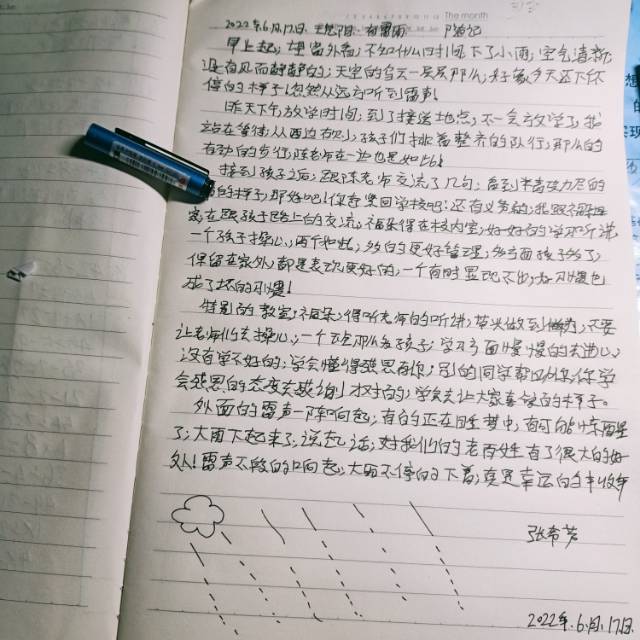 The month
2022年6月17日 星期五 有雷雨 随笔记
早上起,望窗外看,不知什么时间下了小雨,空气清新
没有风而静静的,天空的乌云一层层那么,好像今天还下不
停的样子!忽然从远方听到雷声!
昨天下午放学时间,到了接送地点,不一会放学了,我
站在等待从西边右,孩子们排着整齐的队行,那么的
有劲的步行,陈老师在一边也是如此!
接到孩子之后,跟陈老师交流了几句,看到
的样子,那好吧!你赶紧回学校吧!还有义务的,我跟
跟孩子路上的交流,福朵得在校内,好好的学听讲
一个孩子操心,两个如此,多的更好管理,多方面孩子多了,
保留在家外,都是表现更好的,一个有时显现不出,好习惯也
成了坏的习惯!
特别的教室,福朵,得听老师的听讲,带头做到,不要
让老师们去操心,一个班那么多孩子,学习方面慢慢的去进心,
没有学不好的,学会懂得感思再你,别的同学帮你学
会感思的态度去感谢别人才对的,学会去让大家喜爱的样子。
外面的雷声一阵响起,有的正在睡梦中,有可能
了,大雨下起来了,说乱话,对我们的老百姓有了很大的好
处!雷声不断的响起,大雨不停的下着,真是幸运的丰收年
张希芳
2022年.6.月.17日.